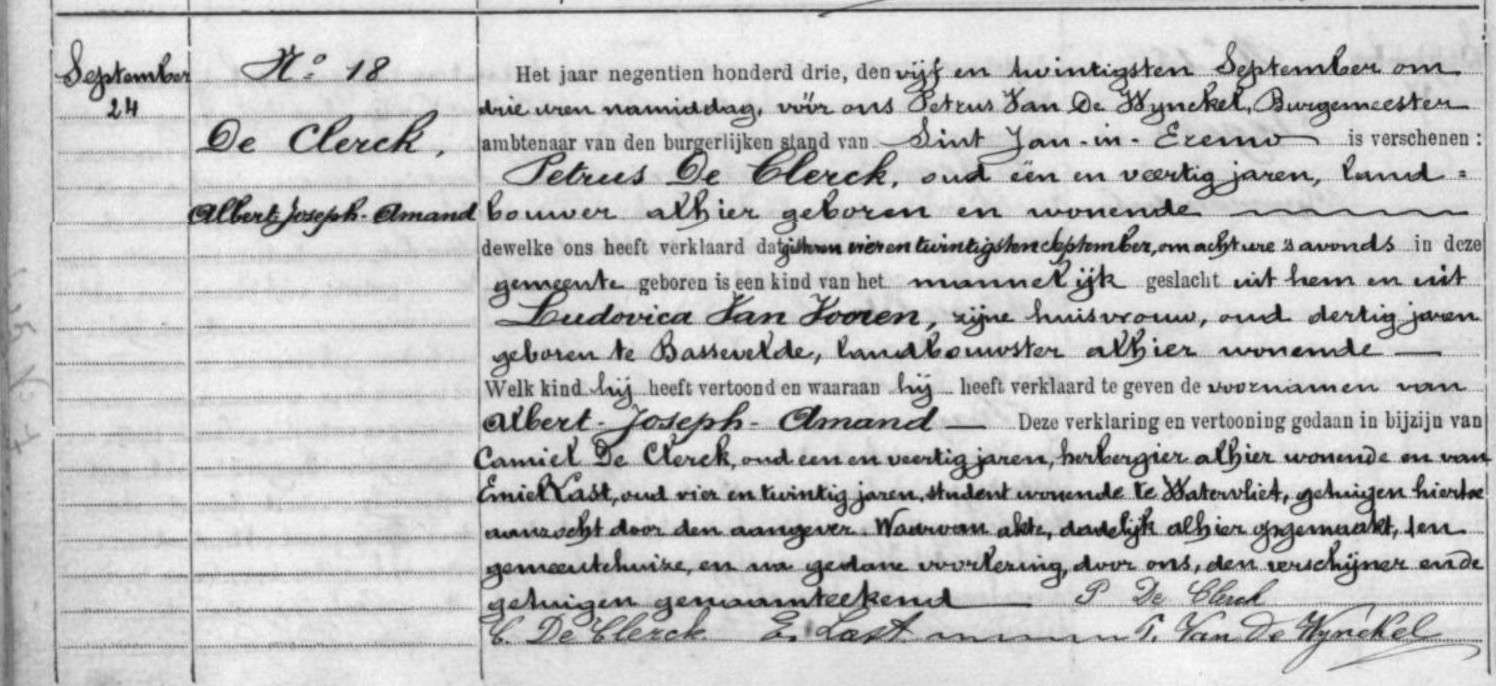 September
24
N.o 18
De Clerck,
Albert-Joseph-Amand
Het jaar negentien honderd drie, den vijf en twintigsten September om
drie uren namiddag, vóór ons Petrus Van De Wynckel, Burgemeester
ambtenaar van den burgerlijken stand van Sint Jan-in-Eremo is verschenen :
Petrus De Clerck, oud één en veertig jaren, land=
bouwer alhier geboren en wonende
dewelke ons heeft verklaard dat gisteren vier en twintigsten september, om acht ure 's avonds in deze
gemeente geboren is een kind van het mannelijk geslacht uit hem en uit
Ludovica Van Vooren, zijne huisvrouw, oud dertig jaren
geboren te Bassevelde, landbouwster alhier wonende —
Welk kind hij heeft vertoond en waaraan hij heeft verklaard te geven de voornamen van
Albert-Joseph-Amand — Deze verklaring en vertooning gedaan in bijzijn van
Camiel De Clerck, oud een en veertig jaren, herbergier alhier wonende en van
Emiel Last, oud vier en twintig jaren, student wonende te Watervliet, getuigen hiertoe
aanzocht door den aangever. Waarvan akte, dadelijk alhier opgemaakt, ten
gemeentehuize, en na gedane voorlezing, door ons, den verschijner en de
getuigen genaamteekend — P De Clerck
C. De Clerck E. Last P. Van De Wynckel